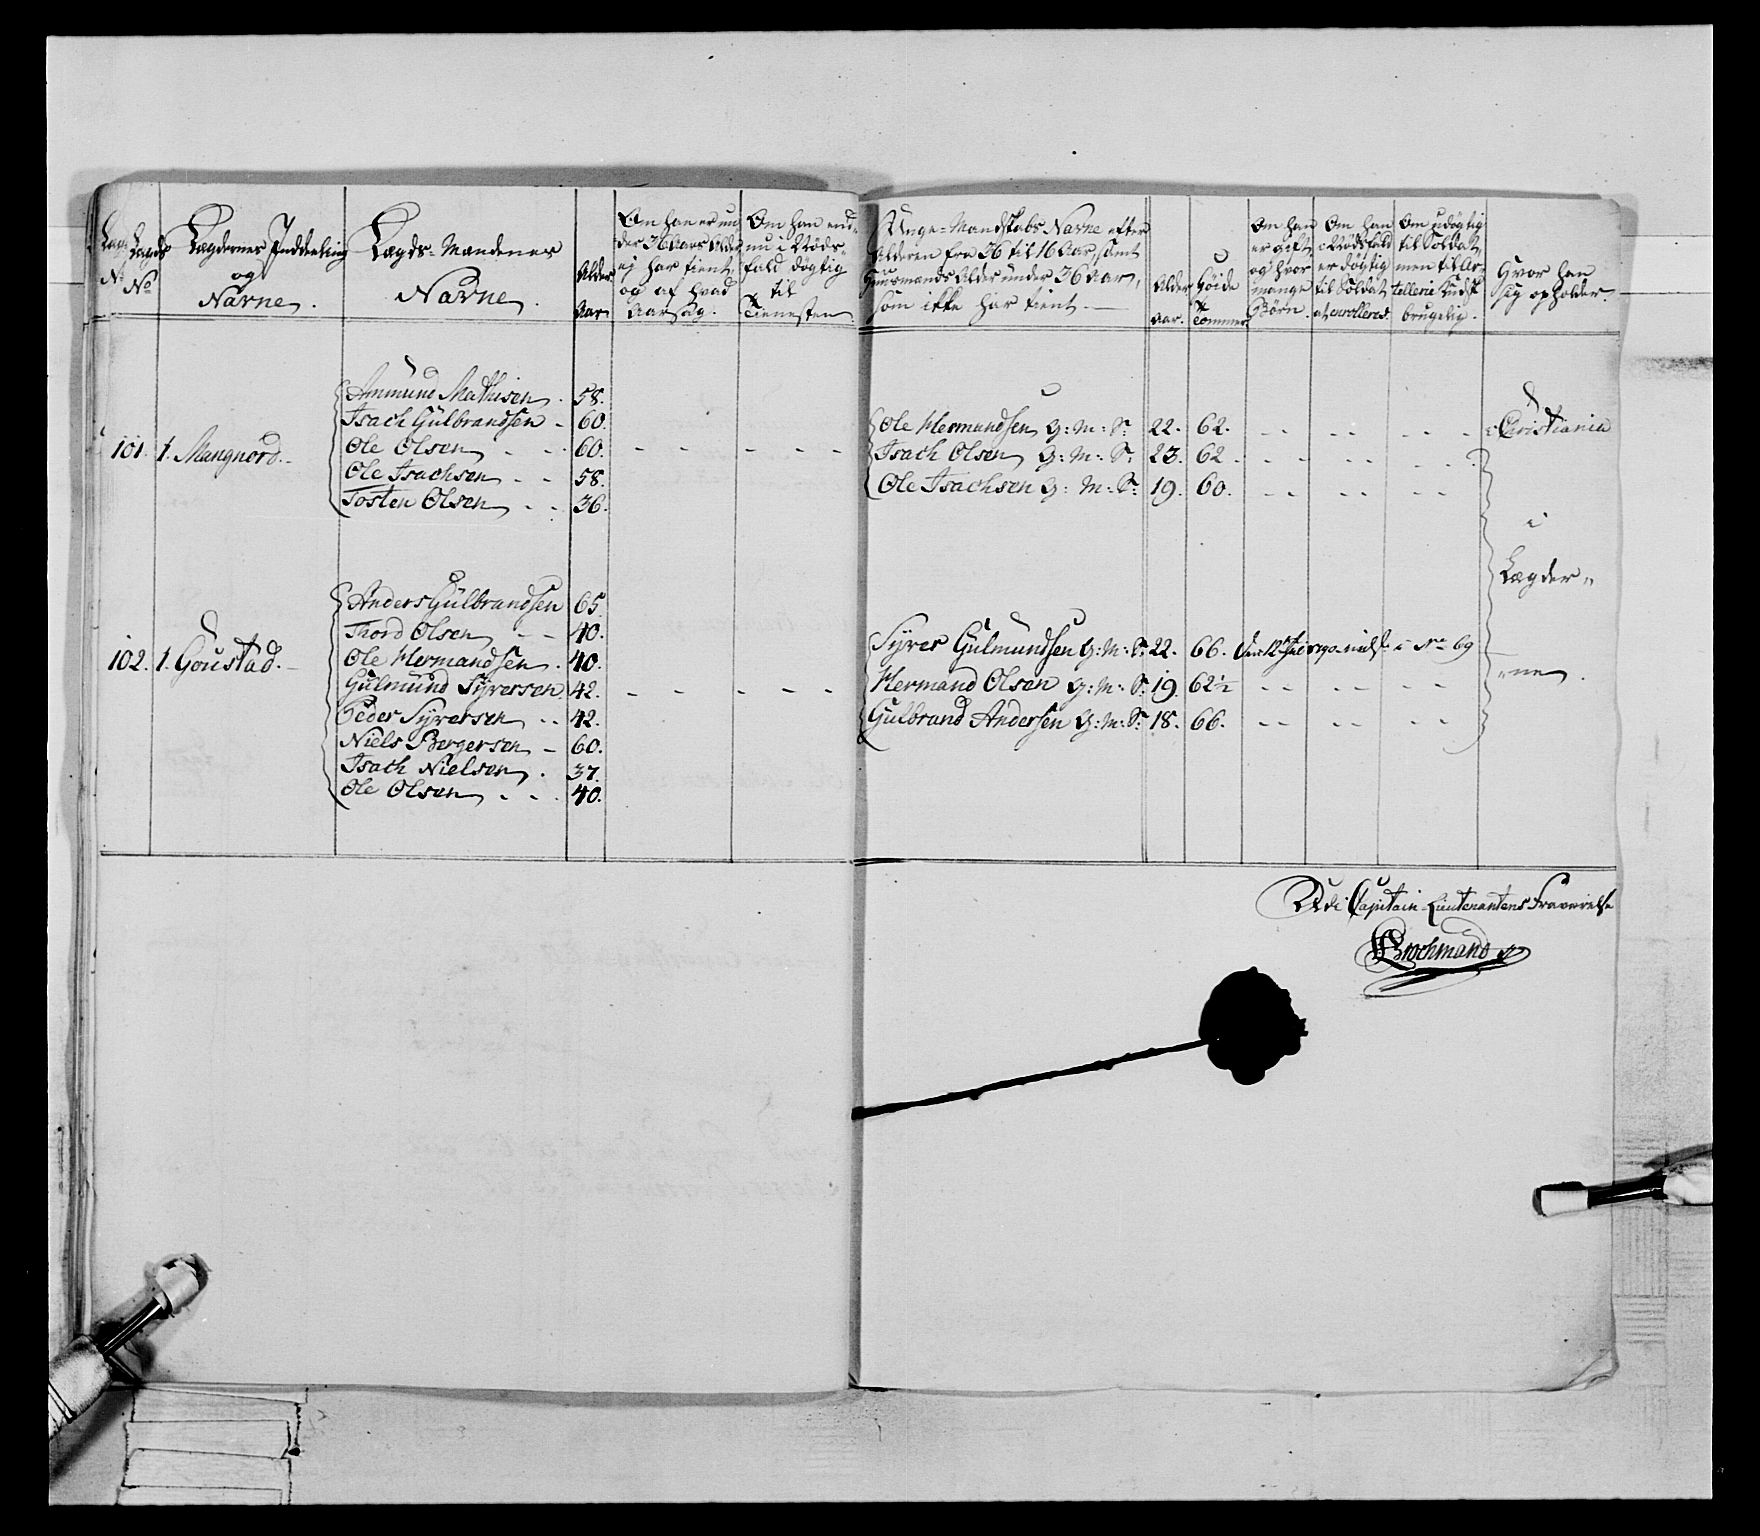 Lægds No
Lægdernes Inddeeling og Navne.
Lægds-Mændenes Navne.
Alder Aar
Om han er under 36 Aars Alder, ej har tient, og af hvad Aarsag.
Om han endnu i Nødsfald døgtig til Tienesten
Unge-Mandskabs Navne efter Alderen fra 36 til 16 Aar, samt Huusmænds Alder under 36 Aar, som ikke har tient.
Alder Aar.
Høide Tommer.
Om han er gift, og hvor mange Børn.
Om han i Nødsfald er døgtig til Soldat at enrolleres.
Om udøgtig til Soldat, men til Artellerie Kudsk brugelig.
Hvor han sig opholder.
Ammund Mathisen. 58.
Isach Gülbrandsen - 60.
101. 1. Mangnord. Ole Olsen - - 60. - - - - -
Ole Isachsen - - 58.
Tosten Olsen - - 36.
Ole Hermandsen G: M: S: 22. 62. - - - - i Christiania
Isach Olsen G: M: S: 23. 62. - - - - - -
Ole Isachsen G: M: S: 19. 60. - - - - - -
i
Lægder-
-ne.
Anders Gülbrandsen 65.
Thord Olsen - - 40.
102. 1. Goustad. Ole Hermandsen. 40.
Gulmünd Syversen 42. - - - - -
Peder Syversen - - 42.
Niels Bergersen - 60.
Isach Nielsen. 37.
Ole Olsen - - 40.
Syver Gulmundsen G: M: S: 22. 66. i No 69
Hermand Olsen G: M: S: 19. 62½ - - - - - -
Gulbrand Andersen G: M: S: 18. 66. - - - - - -
Udi Capitain Lieutenantens Fraværelse
Brochmand